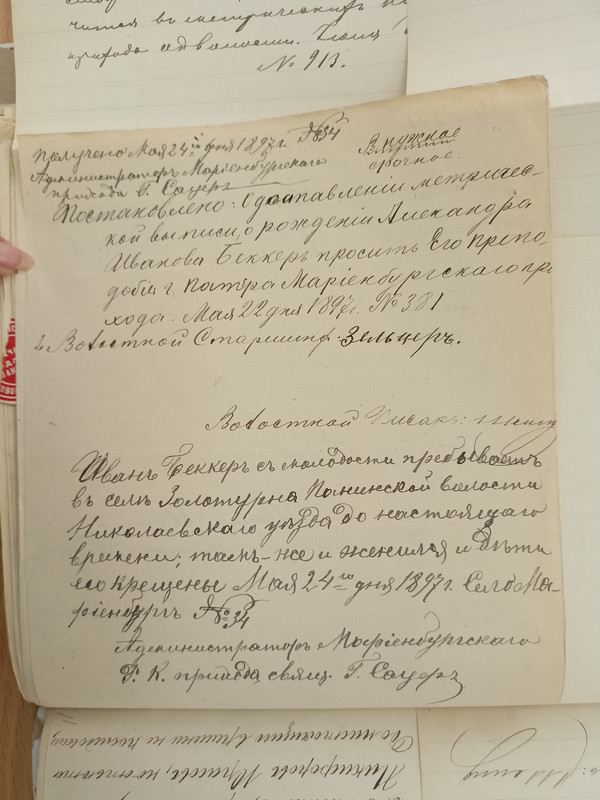 чится въ метрическихъ
прихода
№ 913.
Получено Мая 24го дня 1897 г. №34
Администраторъ Маріенбургскаго
прихода Г. Сауеръ
Въ нужное
срочное.
Постановлено: О доставленіи метричес-
кой выписи, о рожденіи Александра
Иванова Беккеръ просить Его Препо-
добія г. Патра Маріенбургскаго при
хода. Мая 22 дня 1897 г. № 381
Волостной Старшина: Зельцеръ.
Волостной Писарь:
Иванъ Беккеръ съ молодости пребываетъ
въ селѣ Золотурна Панинской волости
Николаевскаго уѣзда до настоящаго
времени; тамъ-же и женился и дѣти
его крещены Мая 24го дня 1897 г. Село Ма-
ріенбургъ №34
Администраторъ Маріенбургскаго
Р. К. прихода, свящ. Г. Сауеръ